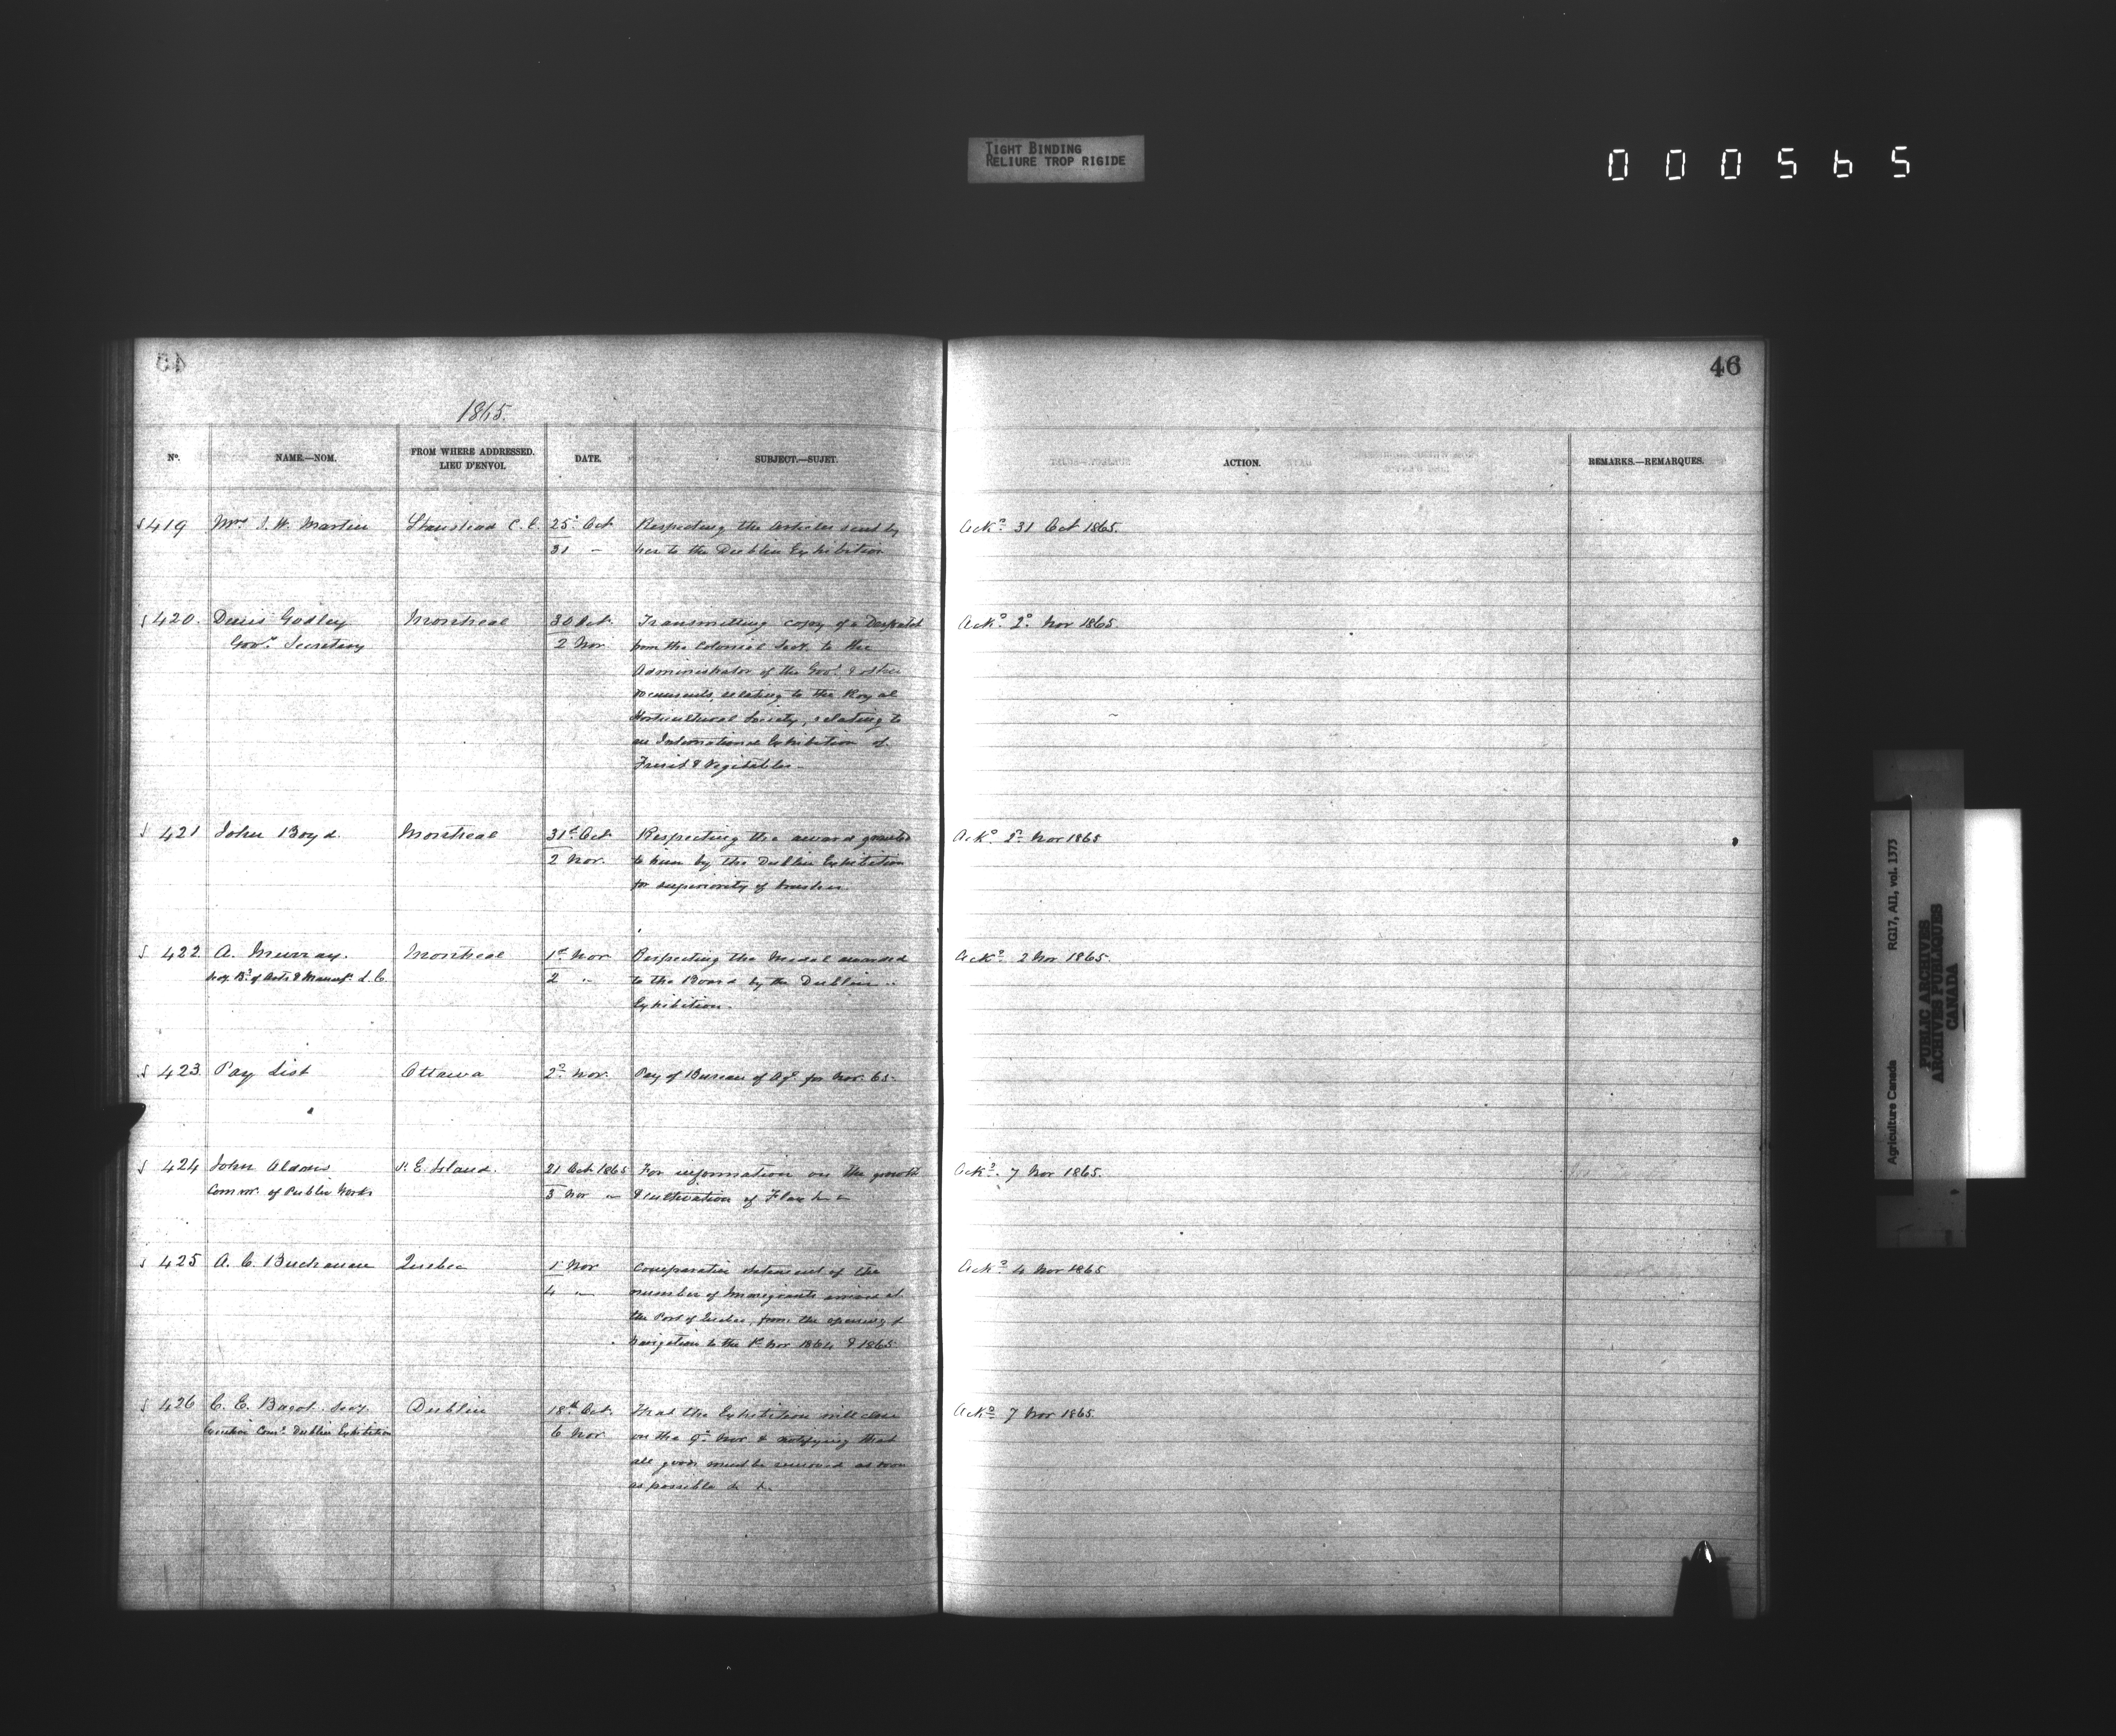 TIGHT BINDING
RELIURE TROP RIGIDE
000565
46
1865.
No. NAME.—NOM. FROM WHERE ADDRESSED. LIEU D'ENVOI. DATE. SUBJECT.—SUJET. ACTION. REMARKS.—REMARQUES.
419 Mrs J. W. Martin Stanstead C. E. 25 Oct Respecting the articles sent by Ackd 31 Oct 1865.
31 " her to the Dublin Exhibition
420. Denis Godley Montreal 30 Oct. Transmitting copy of a Despatch Ackd 2d Nov 1865.
Govr Secretary 2 Nov from the Colonial Secy to the
Administrator of the Govt & other
documents, relating to the Royal
Horticultural Society, relating to
an International Exhibition of
Fruit & Vegetables—
421 John Boyd. Montreal 31st Oct. Respecting the award granted Ackd 2d Nov 1865
2 Nov. to him by the Dublin Exhibition
for superiority of
422 A. Murray. Montreal 1st Nov Respecting the Medal awarded Ackd 2 Nov 1865.
Secy Bd of Arts & Manufs L. C. 2 " to the Board by the Dublin
Exhibition.
423. Pay List Ottawa 2d Nov. Pay of Bureau of Agr for Nov. 65.
424 John Aldous P. E. Island. 21 Oct 1865 For information on the growth Ackd 7 Nov 1865.
Commr. of Public Works 3 Nov " & cultivation of Flax &c
425 A. C. Buchanan Quebec 1 Nov Comparative statement of the Ackd 4 Nov 1865
4 " number of Immigrants arrived at
the Port of Quebec, from the opening of
Navigation to the 1st Nov 1864 & 1865
426 C. E. Bagot Secy Dublin 18th Oct. That the Exhibition will close Ackd 7 Nov 1865.
Executive Come Dublin Exhibition 6 Nov on the 9th Nov & notifying that
all goods must be removed as soon
as possible &c &c.
Agriculture Canada RG17, AII, vol. 1373
PUBLIC ARCHIVES
ARCHIVES PUBLIQUES
CANADA